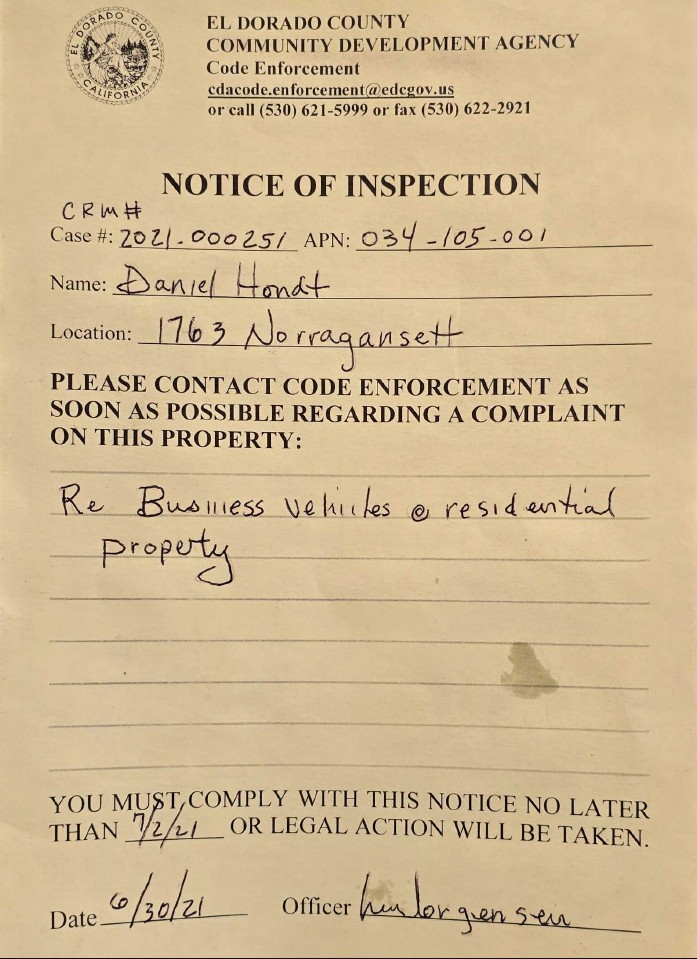 EL DORADO COUNTY
CALIFORNIA
EL DORADO COUNTY
COMMUNITY DEVELOPMENT AGENCY
Code Enforcement
cdacode.enforcement@edcgov.us
or call (530) 621-5999 or fax (530) 622-2921
NOTICE OF INSPECTION
CRM#
Case #: 2021-000251 APN: 034-105-001
Name: Daniel Hondt
Location: 1763 Norragansett
PLEASE CONTACT CODE ENFORCEMENT AS
SOON AS POSSIBLE REGARDING A COMPLAINT
ON THIS PROPERTY:
Re Business vehicles @ residential
property
YOU MUST COMPLY WITH THIS NOTICE NO LATER
THAN 7/2/21 OR LEGAL ACTION WILL BE TAKEN.
Date 6/30/21 Officer Jorgensen